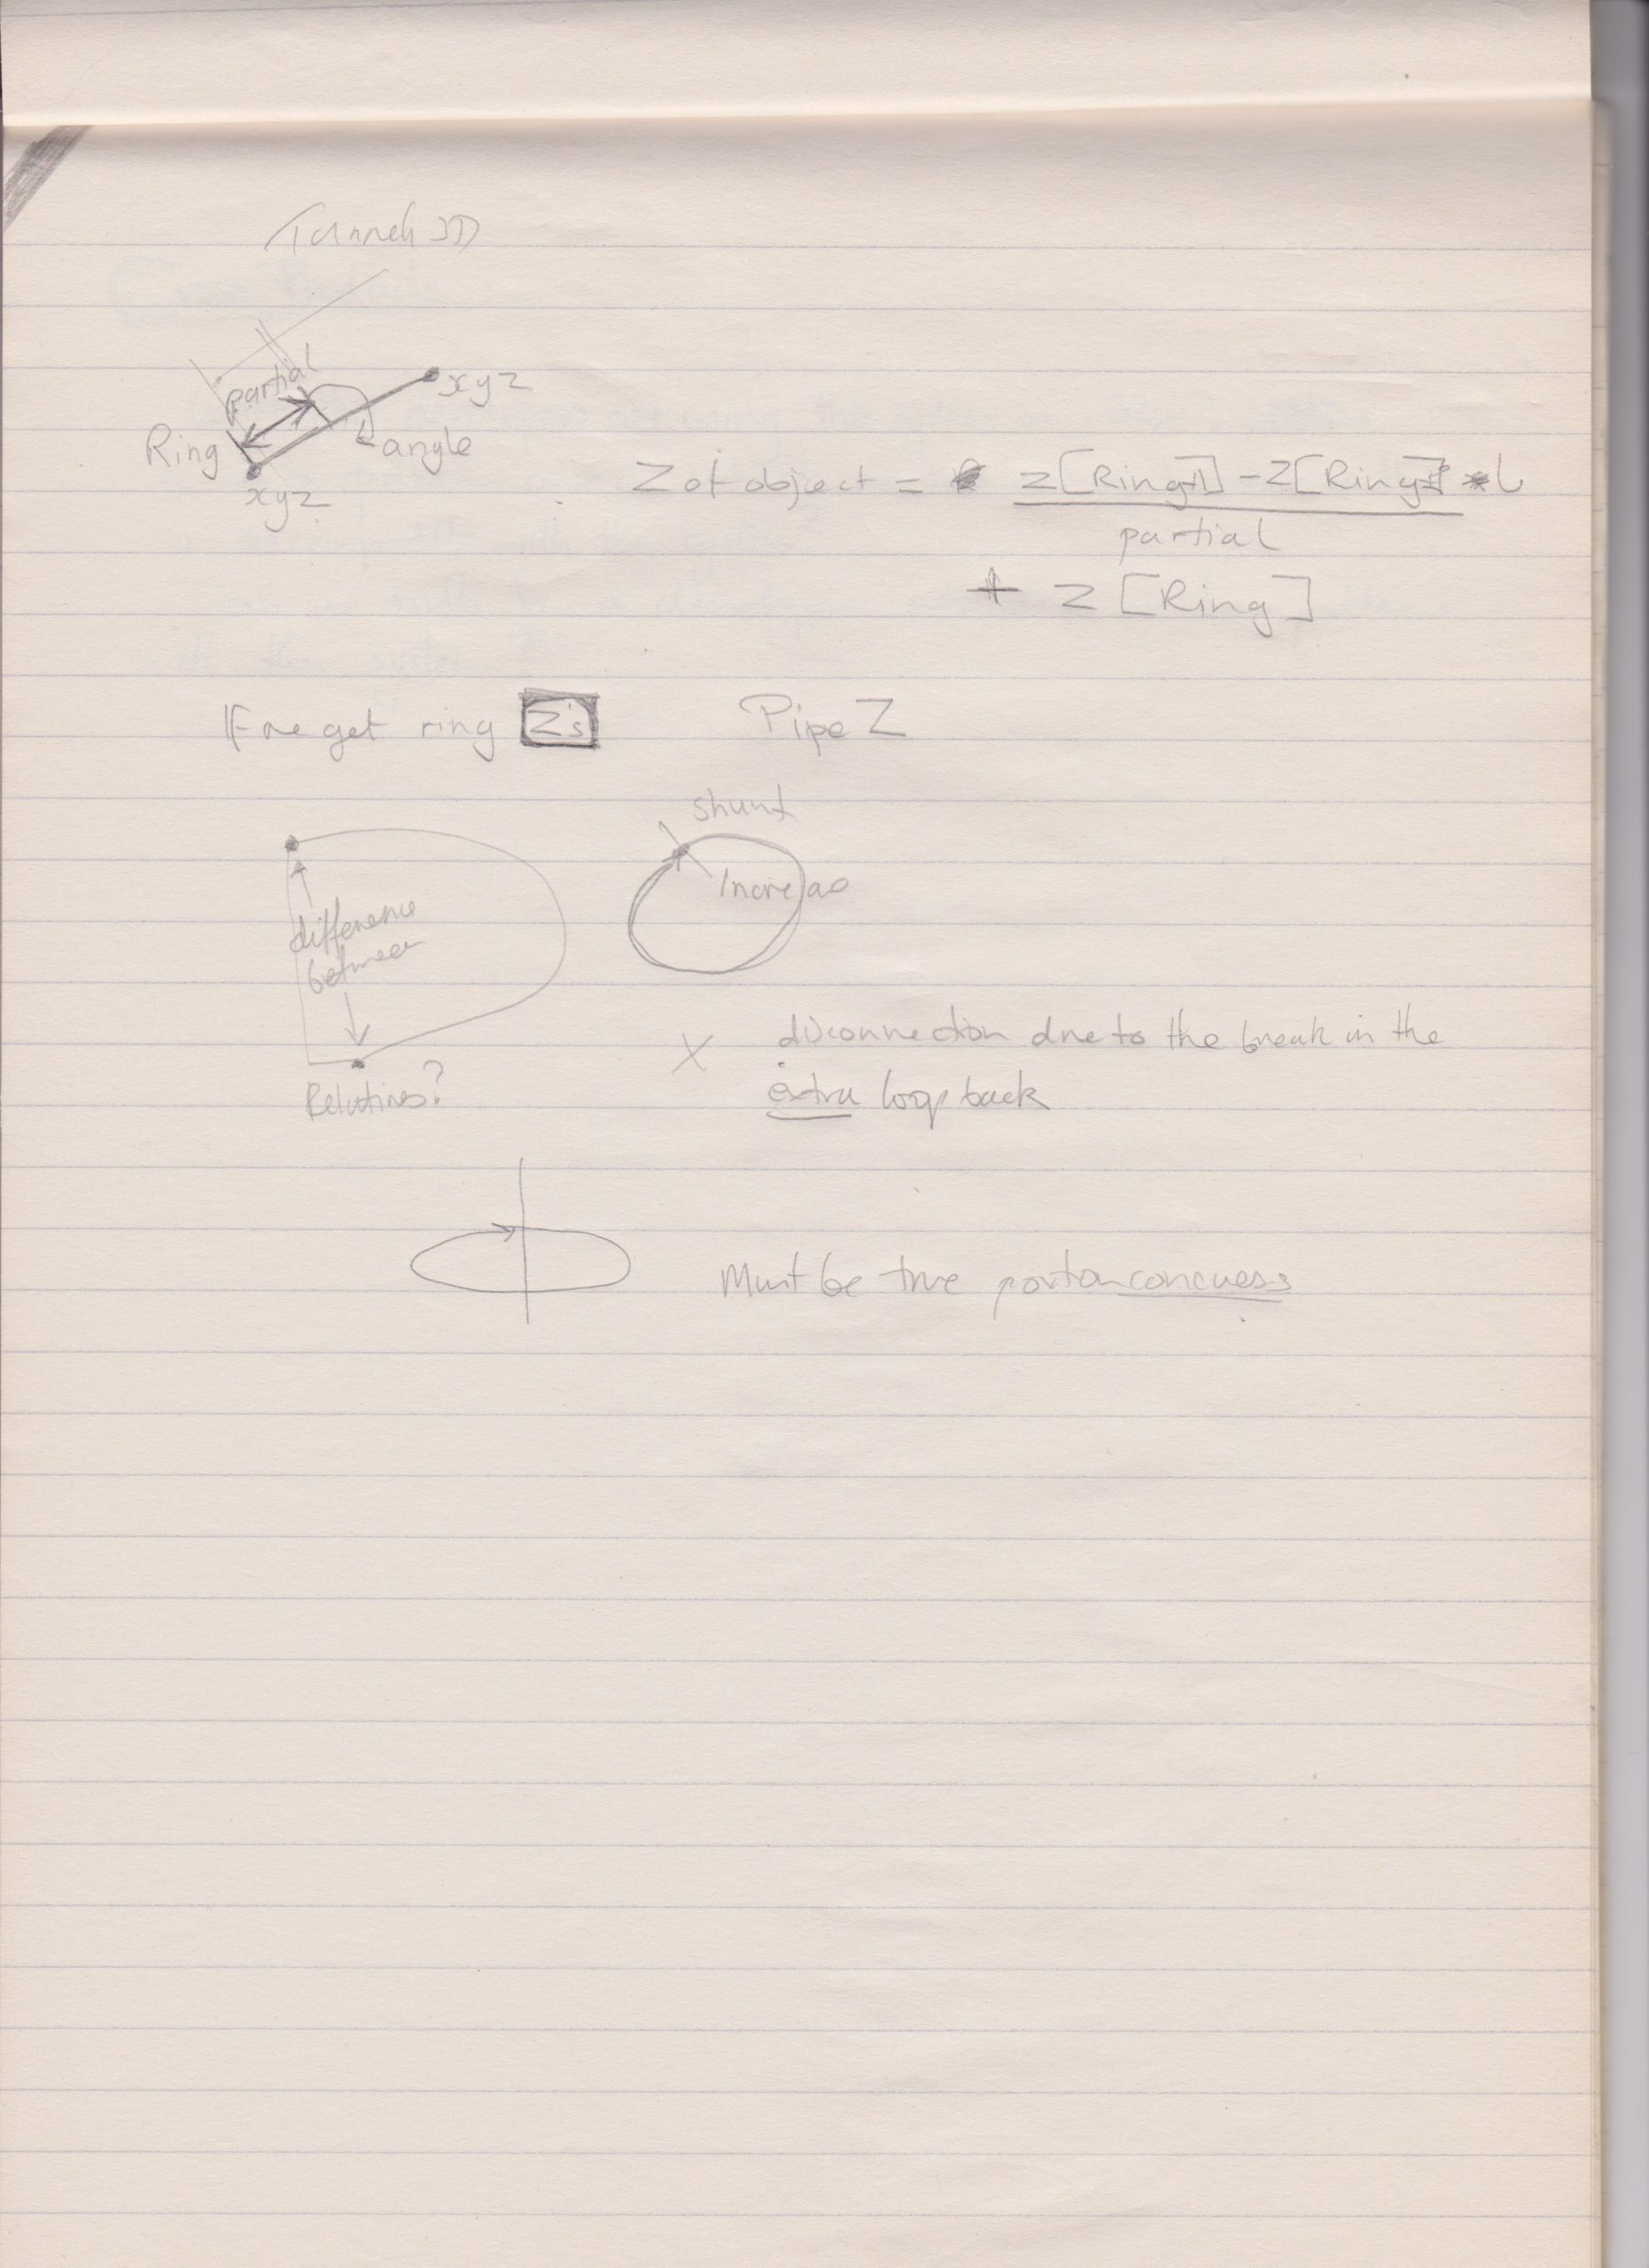 Tunnels 3D
partial
xyz
Ring
angle
xyz
Z of object = Z[Ring+1] - Z[Ring]
partial
+ Z [Ring]
get ring Z's Pipe Z
shunt
Increase
difference
between
X disconnection due to the break in the
extra loop back
Relatives?
Must be true